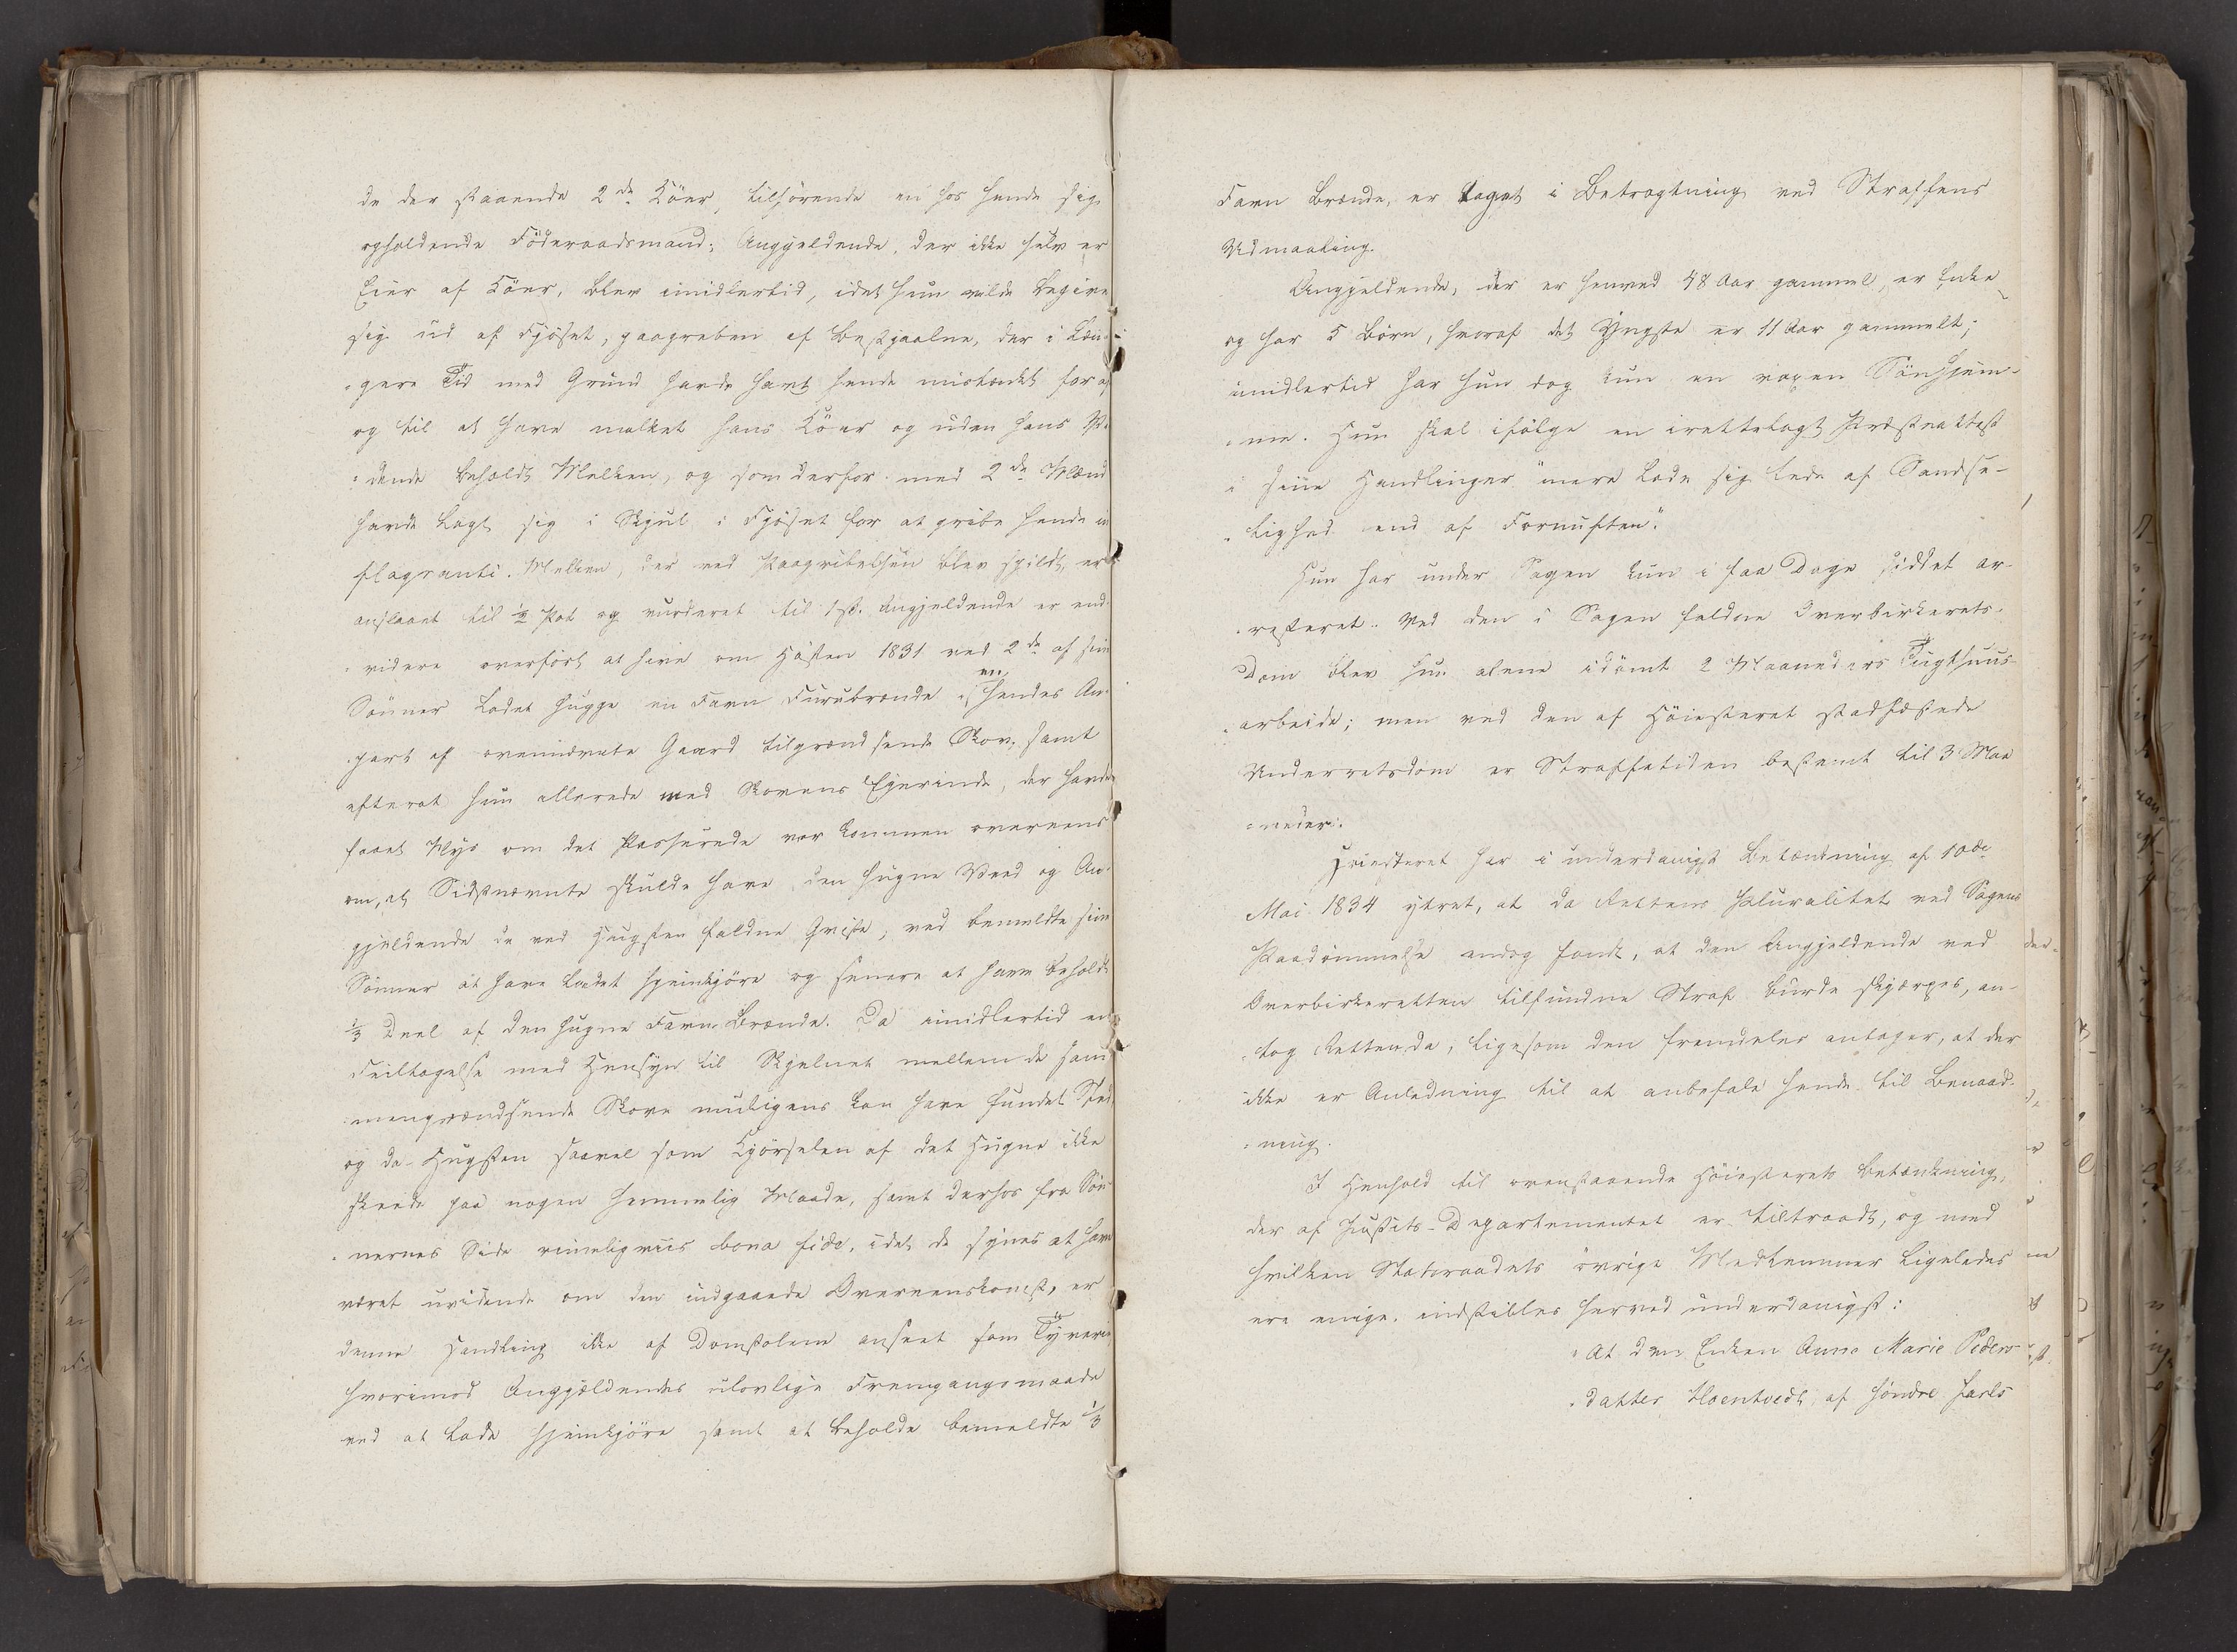 de der staaende 2de Köer, tilhörende en hos hende sig
opholdende Föderaadsmand; Angjeldende, der ikke selv er
Eier af Köer, blev imidlertid, idet hun vilde begive
sig ud af Fjöset, paagreben af Bestjaalne, der i Læn-
=gere Tid med Grund havde havt hende mistænkt for af
og til at have malket hans Köer og uden hans Vi-
=dende beholdt Melken, og som derfor med 2de Mænd
havde lagt sig i Skjul i Fjöset for at gribe hende in
flagranti. Melken, der ved Paagribelsen blev spildt, er
anslaaet til ½ Pot og vurderet til 1 ß. Angjeldende er end-
=videre overfört at have om Hösten 1831 ved 2de af sine
Sönner ladet hugge en Favn Furubrænde i en hendes An-
=part af ovennævnte Gaard tilgrændsende Skov, samt
efterat hun allerede med Skovens Eierinde, der havde
faaet Nys om det Passerede var kommen overeens
om, at Sidstnævnte skulde have den hugne Veed og An-
gjeldende de ved Hugsten faldne Qviste, ved bemeldte sine
Sönner at have ladet hjemkjöre og senere at have beholdt
⅓ Deel af den hugne Favn Brænde. Da imidlertid en
Feiltagelse med Hensyn til Skjelnet mellem de sam-
=mengrændsende Skove muligens kan have fundet Sted,
og da Hugsten saavel som Kjörselen af det Hugne ikke
skeede paa nogen hemmelig Maade, samt derhos fra Sön-
=nernes Side rimeligviis bona fide, idet de synes at have
været uvidende om den indgaaede Overeenskomst, er
denne Handling ikke af Domstolene anseet som Tyverie,
hvorimod Angjældendes ulovlige Fremgangsmaade
ved at lade hjemkjöre samt at beholde bemeldte ⅓
Favn Brænde, er taget i Betragtning ved Straffens
Udmaaling.
Angjeldende, der er henved 48 Aar gammel, er Enke
og har 5 Börn, hvoraf det Yngste er 11 Aar gammelt;
imidlertid har hun dog kun en voxen Sön hjem-
=me. Hun skal ifölge en irettelagt Præsteattest
i sine Handlinger "mere lade sig lede af Sandse-
"lighed end af Fornuften".
Hun har under Sagen kun i faa Dage siddet ar-
=resteret. Ved den i Sagen faldne Overbirkerets-
Dom blev hun alene idömt 2 Maaneders Tugthuus-
=arbeide; men ved den af Höiesteret stadfæstede
Underretsdom er Straffetiden bestemt til 3 Maa
=neder.
Höiesteret har i underdanigst Betænkning af 10de
Mai 1834 ytret, at da Rettens Pluralitet ved Sagens
Paadömmelse endog fandt, at den Angjeldende ved
Overbirkeretten tilfundne Straf burde skjærpes, an-
=tog Retten da, ligesom den fremdeles antager, at der
ikke er Anledning til at anbefale hende til Benaad-
=ning.
I Henhold til ovenstaaende Höiesterets Betænkning,
der af Justits-Departementet er tiltraadt, og med
hvilken Statsraadets övrige Medlemmer ligeledes
ere enige, indstilles herved underdanigst:
"At den Enken Anne Marie Peders-
"datter Hoentvedt af söndre Jarls